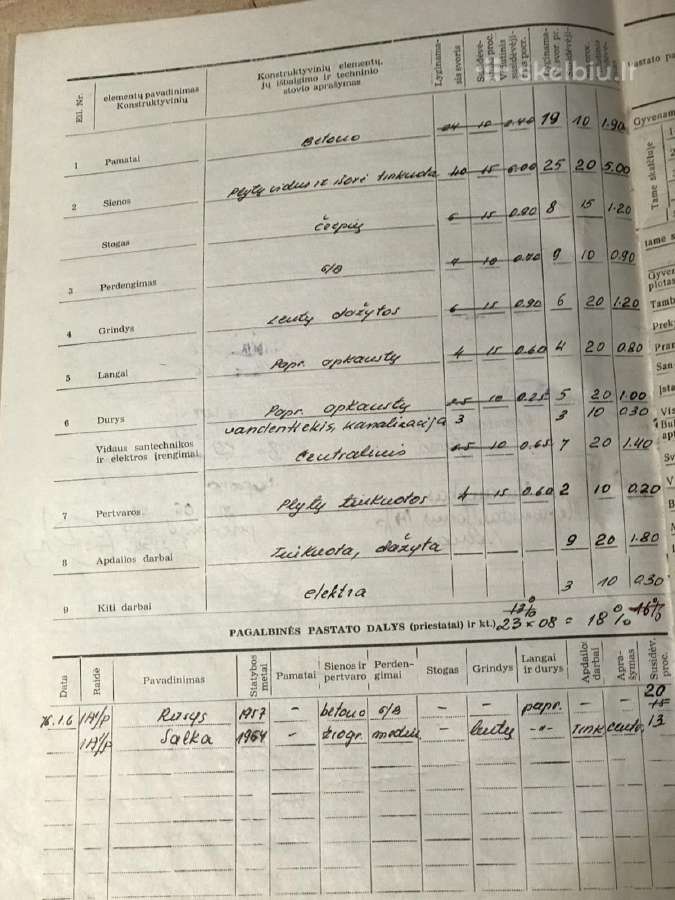 skelbiu.lt
Eil. Nr.
elementų pavadinimas
Konstruktyvinių
Konstruktyvinių elementų,
jų išbaigimo ir techninio
stovio aprašymas
Lyginama-
sis svoris
Susidėvė-
jimo proc.
Betono 24 10 2.40 19 10 1.90
1 Pamatai
Plytų vidus ir išorė tinkuota 40 15 6.00 25 20 5.00
2 Sienos
čerpių 6 15 0.90 8 15 1.20
Stogas
G/B 7 10 0.70 9 10 0.90
3 Perdengimas
Lentų dažytos 6 15 0.90 6 20 1.20
4 Grindys
Papr. apkaustų 4 15 0.60 4 20 0.80
5 Langai
Papr. apkaustų 2.5 10 0.25 5 20 1.00
6 Durys
vandentiekis, kanalizacija 3 3 10 0.30
Vidaus santechnikos
ir elektros įrengimai
Centralinis 6.5 10 0.65 7 20 1.40
Plytų tinkuotos 4 15 0.60 2 10 0.20
7 Pertvaros
Tinkuota, dažyta 9 20 1.80
8 Apdailos darbai
elektra 3 10 0.30
9 Kiti darbai
13%
PAGALBINĖS PASTATO DALYS (priestatai) ir kt.) 23 × 08 = 18% 16%
Data
Raidė
Pavadinimas
Statybos
metai
Pamatai
Sienos ir
pertvaro
Perden-
gimai
Stogas
Grindys
Langai
ir durys
Apdailo
darbai
Apra-
šymas
Susidėv.
proc.
20
Rūsys 1957 - betono G/B - - papr. - - 15
Salka 1964 - medin. - lentų -"- Tink. centr. 13
Pastato pa
Gyvenam
Tame skaičiuje
tame s
Gyven
plotas
Tamb
Prek
Pra
San
Įsta